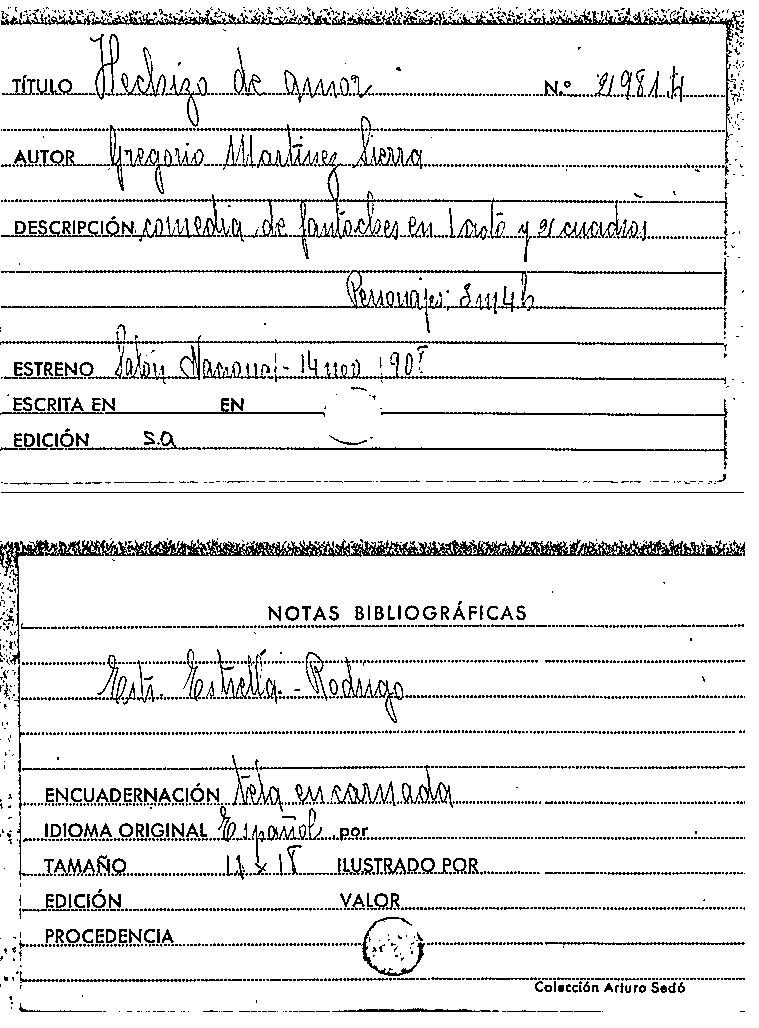 TÍTULO Hechizo de amor N.º
AUTOR Gregorio Martinez Sierra
DESCRIPCIÓN comedia de fantoches en 1 acto y 2 cuadros
Personajes: 3 m 4 h
ESTRENO Salón Nacional - 14 nov 1908
ESCRITA EN EN
EDICIÓN s.a
NOTAS BIBLIOGRÁFICAS
Estr. Estrella - Rodrigo
ENCUADERNACIÓN tela encarnada
IDIOMA ORIGINAL Español por
TAMAÑO ILUSTRADO POR
EDICIÓN VALOR
PROCEDENCIA
Colección Arturo Sedó